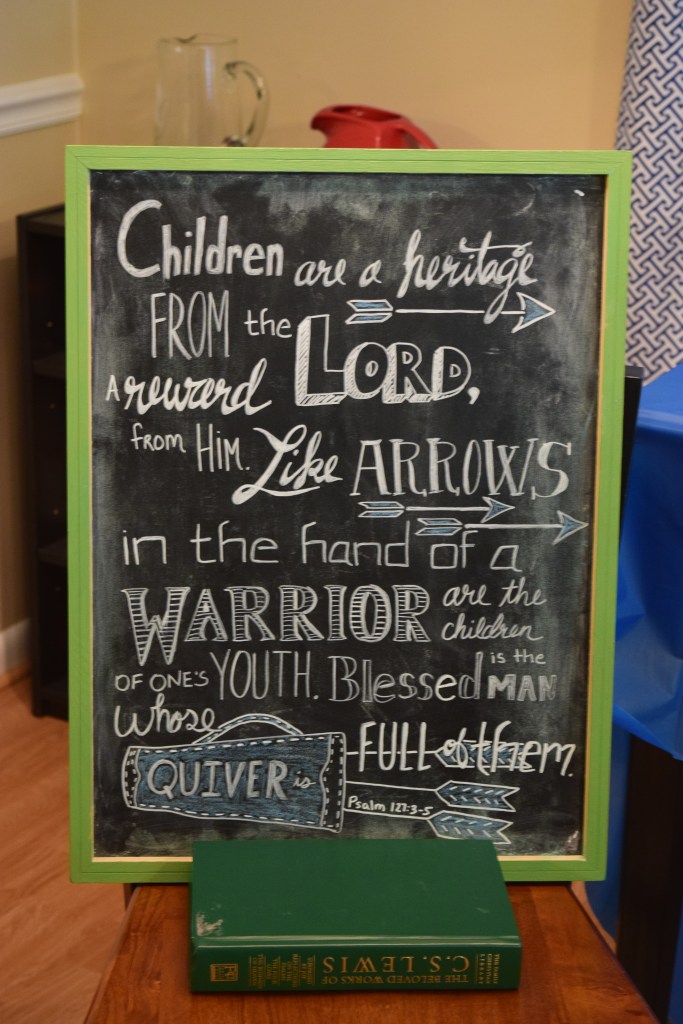 Children are a heritage
FROM the LORD,
A reward
from HIM. Like ARROWS
in the hand of a
WARRIOR are the children
OF ONE'S YOUTH. Blessed is the MAN
whose
QUIVER is FULL of them.
Psalm 127:3-5
THE BELOVED WORKS OF
C.S. LEWIS